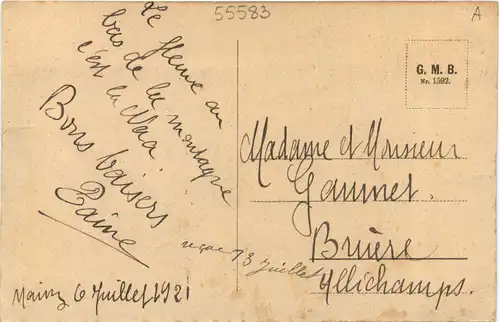 55583
A
Le fleuve au
bas de la montagne
c'est la Naa.
Bons baisers
G. M. B.
Nr. 1592.
Madame et Monsieur
Gaumet.
Bruère
Allichamps.
reçue 13 Juillet
6 Juillet 1921